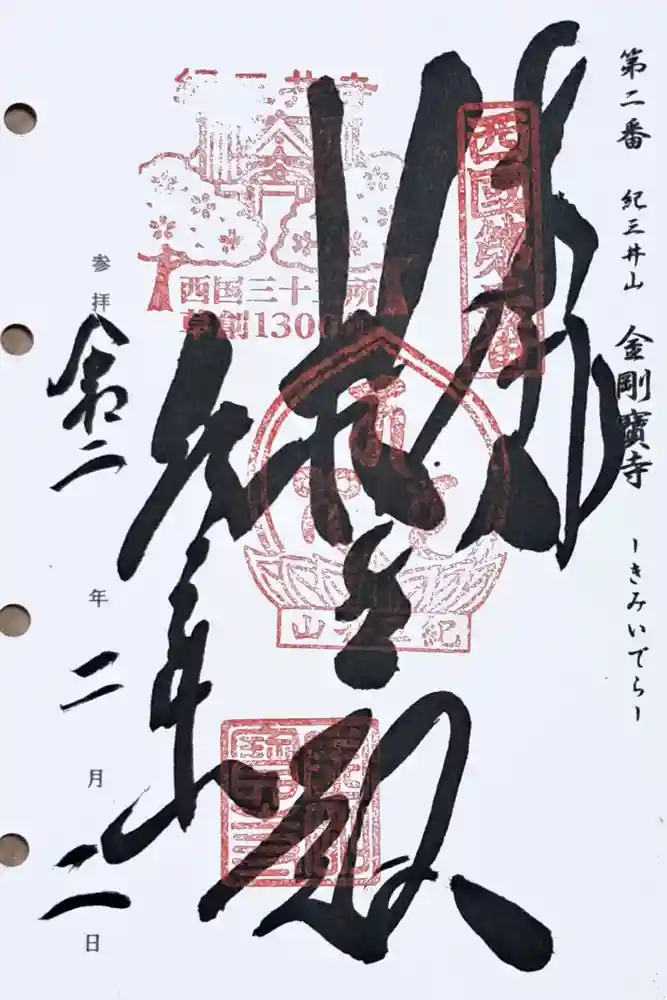 第二番 紀三井山 金剛寶寺 ーきみいでらー
西國第二番
紀三井寺
西国三十三所
草創1300年
救世殿
紀三井山
紀三井寺
参拝 令和二年二月二日